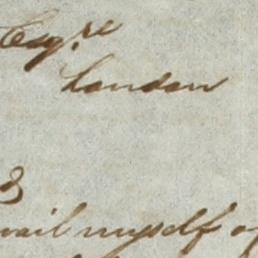 Esqre
London
3
avail myself of